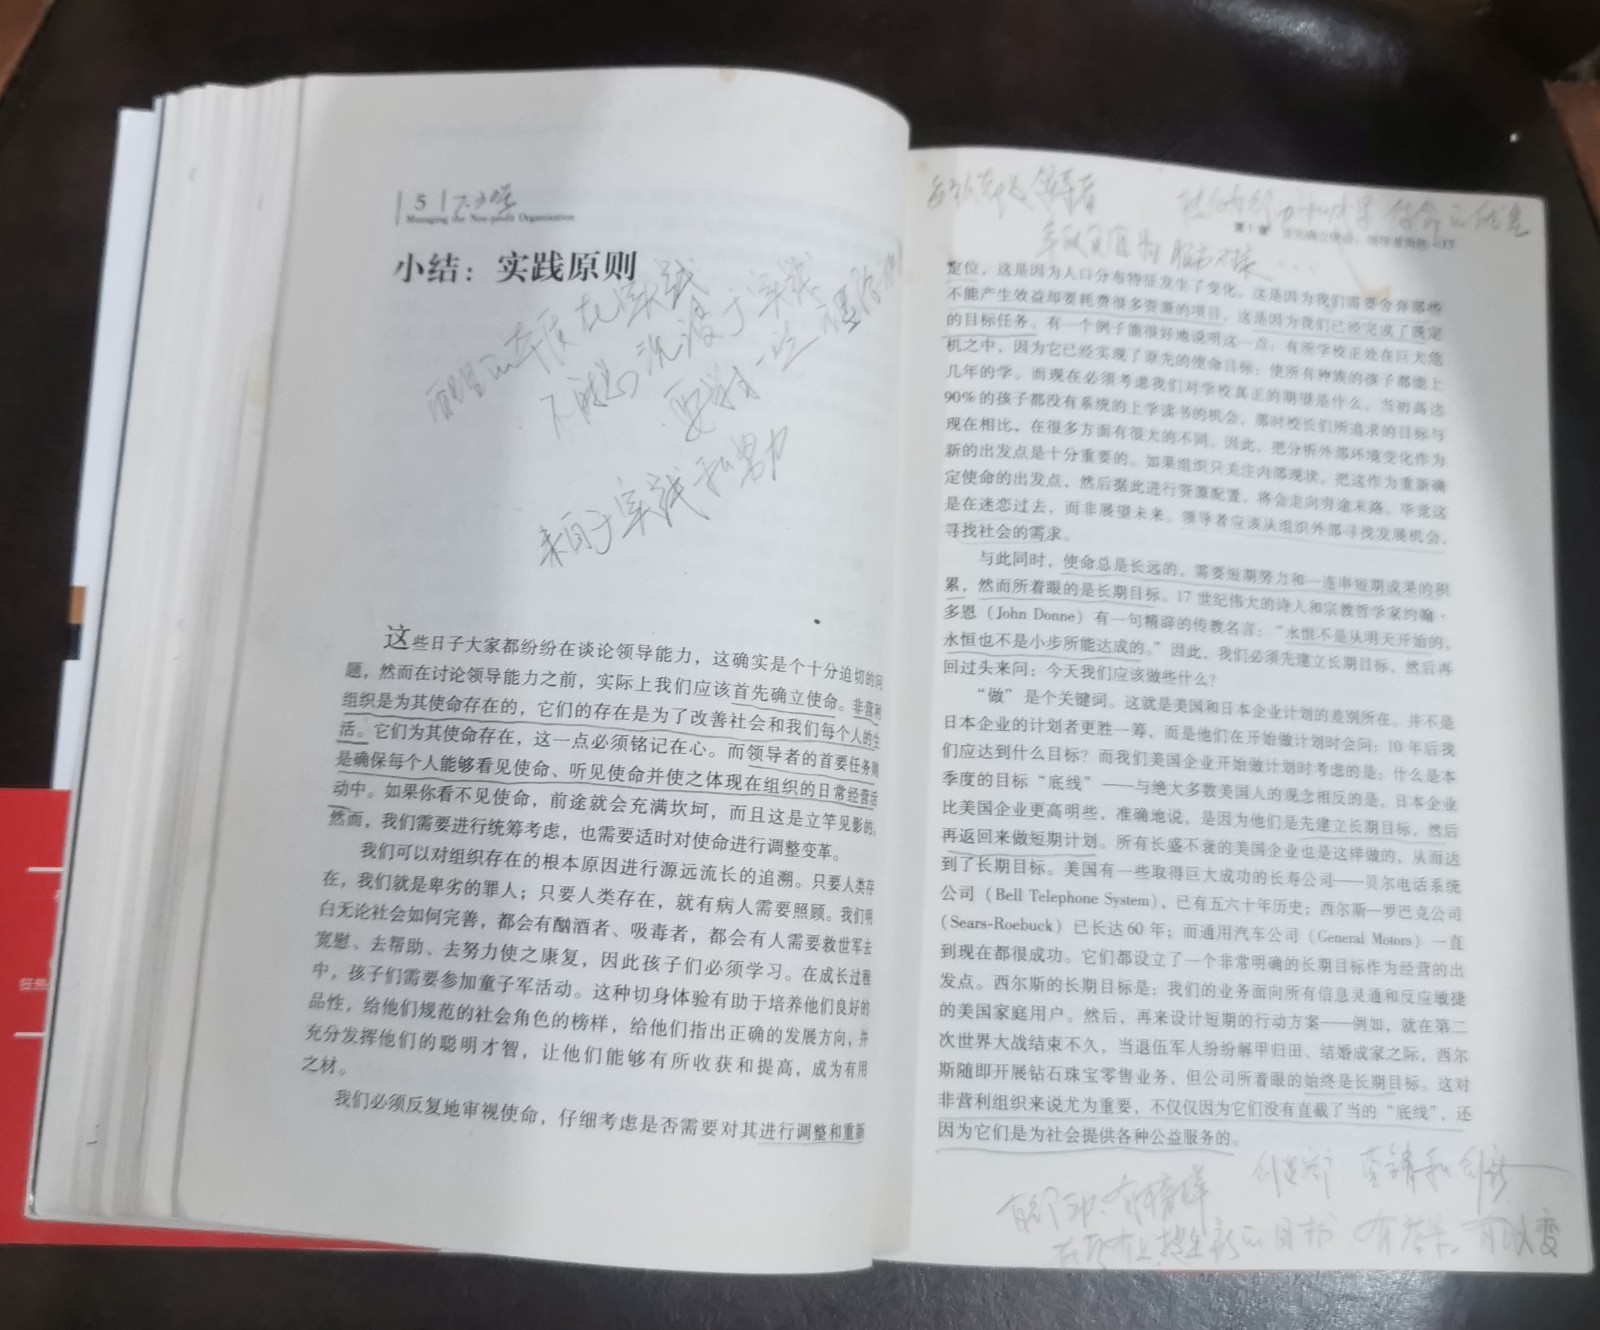 5
Managing the Non-profit Organization
小结：实践原则
管理的本质在实践
不能沉没于实践
亲自于实践和努力
这些日子大家都纷纷在谈论领导能力，这确实是个十分迫切的问
题，然而在讨论领导能力之前，实际上我们应该首先确立使命。非营利
组织是为其使命存在的，它们的存在是为了改善社会和我们每个人的生
活。它们为其使命存在，这一点必须铭记在心。而领导者的首要任务则
是确保每个人能够看见使命、听见使命并使之体现在组织的日常经营活
动中。如果你看不见使命，前途就会充满坎坷，而且这是立竿见影的。
然而，我们需要进行统筹考虑，也需要适时对使命进行调整变革。
我们可以对组织存在的根本原因进行源远流长的追溯。只要人类存
在，我们就是卑劣的罪人；只要人类存在，就有病人需要照顾。我们明
白无论社会如何完善，都会有酗酒者、吸毒者，都会有人需要救世军去
宽慰、去帮助、去努力使之康复，因此孩子们必须学习。在成长过程
中，孩子们需要参加童子军活动。这种切身体验有助于培养他们良好的
品性，给他们规范的社会角色的榜样，给他们指出正确的发展方向，并
充分发挥他们的聪明才智，让他们能够有所收获和提高，成为有用
之材。
我们必须反复地审视使命，仔细考虑是否需要对其进行调整和重新
第1章 首先确立使命：领导者角色 33
定位，这是因为人口分布特征发生了变化，这是因为我们需要舍弃那些
不能产生效益却要耗费很多资源的项目，这是因为我们已经完成了既定
的目标任务。有一个例子能很好地说明这一点：有所学校正处在巨大危
机之中，因为它已经实现了原先的使命目标：使所有种族的孩子都能上
几年的学。而现在必须考虑我们对学校真正的期望是什么。当初高达
90%的孩子都没有系统的上学读书的机会，那时校长们所追求的目标与
现在相比，在很多方面有很大的不同。因此，把分析外部环境变化作为
新的出发点是十分重要的。如果组织只关注内部现状，把这作为重新确
定使命的出发点，然后据此进行资源配置，将会走向穷途末路。毕竟这
是在迷恋过去，而非展望未来。领导者应该从组织外部寻找发展机会，
寻找社会的需求。
与此同时，使命总是长远的，需要短期努力和一连串短期成果的积
累，然而所着眼的是长期目标。17世纪伟大的诗人和宗教哲学家约翰·
多恩（John Donne）有一句精辟的传教名言：“永恒不是从明天开始的，
永恒也不是小步所能达成的。”因此，我们必须先建立长期目标，然后再
回过头来问：今天我们应该做些什么？
“做”是个关键词。这就是美国和日本企业计划的差别所在。并不是
日本企业的计划者更胜一筹，而是他们在开始做计划时会问：10年后我
们应达到什么目标？而我们美国企业开始做计划时考虑的是：什么是本
季度的目标“底线”——与绝大多数美国人的观念相反的是，日本企业
比美国企业更高明些，准确地说，是因为他们是先建立长期目标，然后
再返回来做短期计划。所有长盛不衰的美国企业也是这样做的，从而达
到了长期目标。美国有一些取得巨大成功的长寿公司——贝尔电话系统
公司（Bell Telephone System），已有五六十年历史；西尔斯－罗巴克公司
（Sears-Roebuck）已长达60年；而通用汽车公司（General Motors）一直
到现在都很成功。它们都设立了一个非常明确的长期目标作为经营的出
发点。西尔斯的长期目标是：我们的业务面向所有信息灵通和反应敏捷
的美国家庭用户。然后，再来设计短期的行动方案——例如，就在第二
次世界大战结束不久，当退伍军人纷纷解甲归田、结婚成家之际，西尔
斯随即开展钻石珠宝零售业务，但公司所着眼的始终是长期目标。这对
非营利组织来说尤为重要，不仅仅因为它们没有直截了当的“底线”，还
因为它们是为社会提供各种公益服务的。